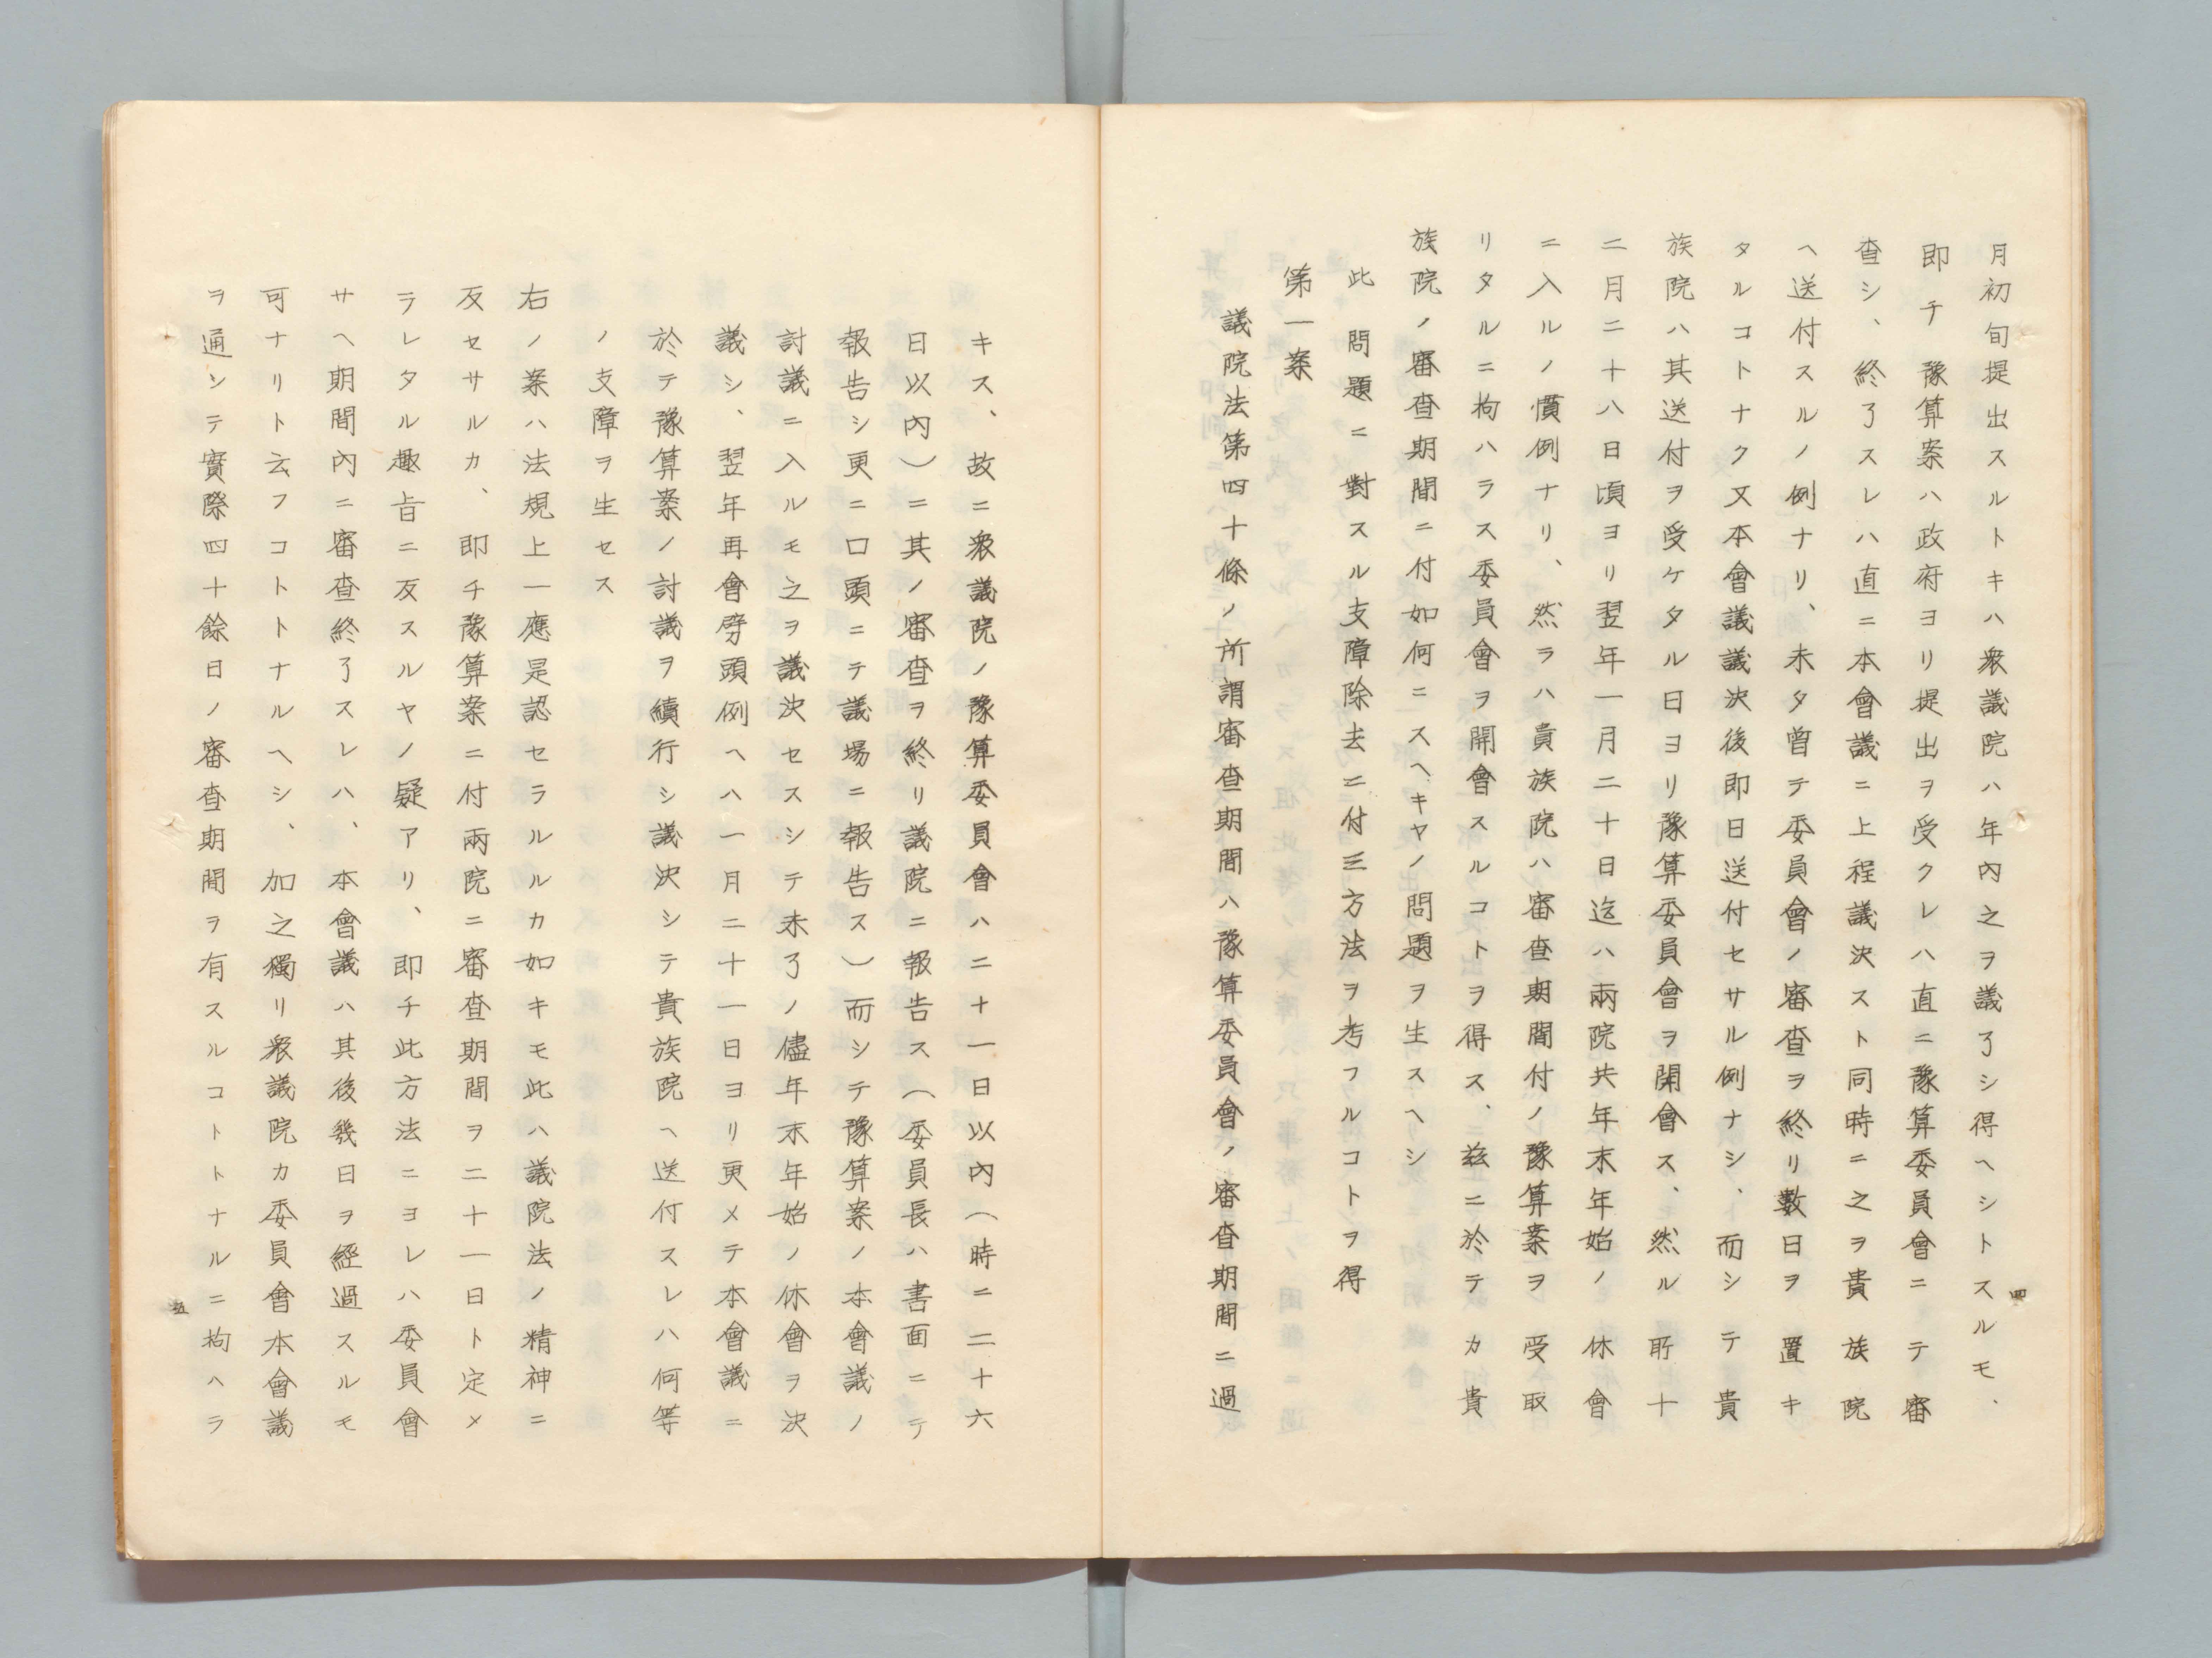 月初旬提出スルトキハ衆議院ハ年內之ヲ議了シ得ヘシトスルモ、
即チ豫算案ハ政府ヨリ提出ヲ受クレハ直ニ豫算委員會ニテ審
查シ、終了スレハ直ニ本會議ニ上程議決スト同時ニ之ヲ貴族院
ヘ送付スルノ例ナリ、未タ曾テ委員會ノ審查ヲ終リ數日ヲ置キ
タルコトナク又本會議議決後即日送付セサル例ナシ、而シテ貴
族院ハ其送付ヲ受ケタル日ヨリ豫算委員會ヲ開會ス、然ル所十
二月二十八日頃ヨリ翌年一月二十日迄ハ兩院共年末年始ノ休會
ニ入ルノ慣例ナリ、然ラハ貴族院ハ審查期間付ノ豫算案ヲ受取
リタルニ拘ハラス委員會ヲ開會スルコトヲ得ス、茲ニ於テカ貴
族院ノ審查期間ニ付如何ニスヘキヤノ問題ヲ生スヘシ
此問題ニ對スル支障除去ニ付三方法ヲ考フルコトヲ得
第一案
議院法第四十條ノ所謂審查期間ハ豫算委員會ノ審查期間ニ過
四
キス、故ニ衆議院ノ豫算委員會ハ二十一日以內（時ニ二十六
日以內）ニ其ノ審查ヲ終リ議院ニ報告ス（委員長ハ書面ニテ
報告シ更ニ口頭ニテ議場ニ報告ス）而シテ豫算案ノ本會議ノ
討議ニ入ルモ之ヲ議決セスシテ未了ノ儘年末年始ノ休會ヲ決
議シ、翌年再會劈頭例ヘハ一月二十一日ヨリ更メテ本會議ニ
於テ豫算案ノ討議ヲ續行シ議決シテ貴族院ヘ送付スレハ何等
ノ支障ヲ生セス
右ノ案ハ法規上一應是認セラルルカ如キモ此ハ議院法ノ精神ニ
反セサルカ、即チ豫算案ニ付兩院ニ審查期間ヲ二十一日ト定メ
ラレタル趣旨ニ反スルヤノ疑アリ、即チ此方法ニヨレハ委員會
サヘ期間內ニ審查終了スレハ、本會議ハ其後幾日ヲ經過スルモ
可ナリト云フコトトナルヘシ、加之獨リ衆議院カ委員會本會議
ヲ通シテ實際四十餘日ノ審查期間ヲ有スルコトトナルニ拘ハラ
五